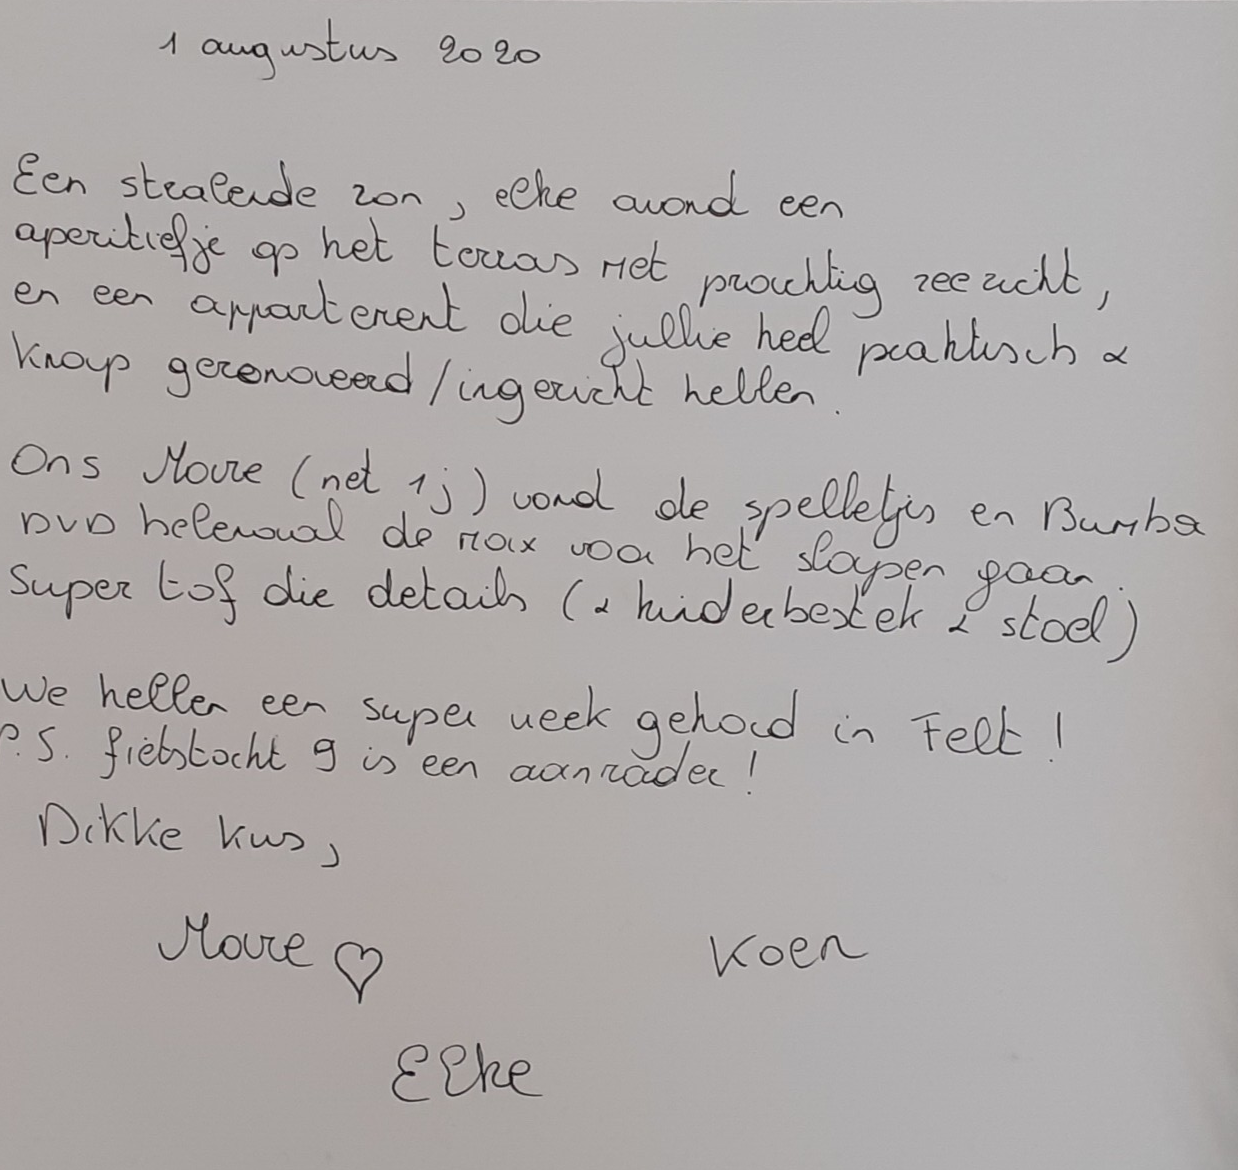 1 augustus 2020
Een stralende zon, elke avond een
aperitiefje op het terras met prachtig zeezicht,
en een appartement die jullie heel praktisch &
knap gerenoveerd/ingericht hebben.
Ons Moire (net 1j) vond de spelletjes en Bumba
DVD helemaal de max voor het slapen gaan.
Super tof die details (& kinderbestek & stoel)
We hebben een super week gehad in Felt!
P.S. fietstocht 9 is een aanrader!
Dikke kus,
Moire ♡ Koen
Elke